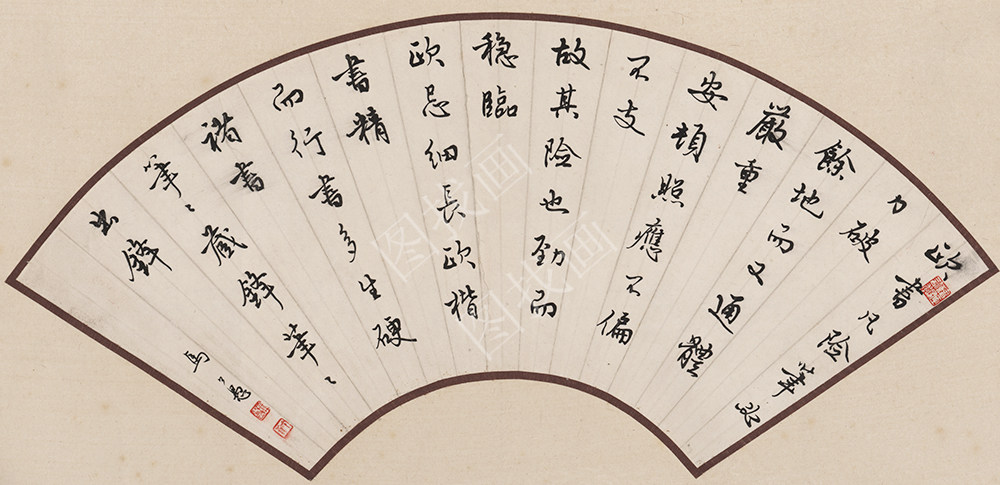 欧書凡險筆必
力破
餘地而又通體
嚴重
安頓照應不偏
不支
故其險也勁而
穩臨
欧忌細長欧楷
書精
而行書多生硬
褚書
筆〻藏鋒筆〻
出鋒
馬
图找画
图找画